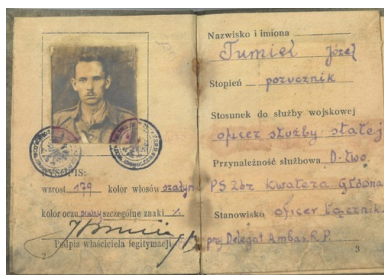 RYSOPIS:
wzrost 179 kolor włosów szatyn
kolor oczu piwny szczególne znaki
Podpis właściciela legitymacji
2
Nazwisko i imiona
Tumiel Józef
Stopień porucznik
Stosunek do służby wojskowej
oficer służby stałej
Przynależność służbowa D-two
PSZbr. Kwatera Główna
Stanowisko oficer łącznik.
przy Delegat. Ambas. R.P.
3